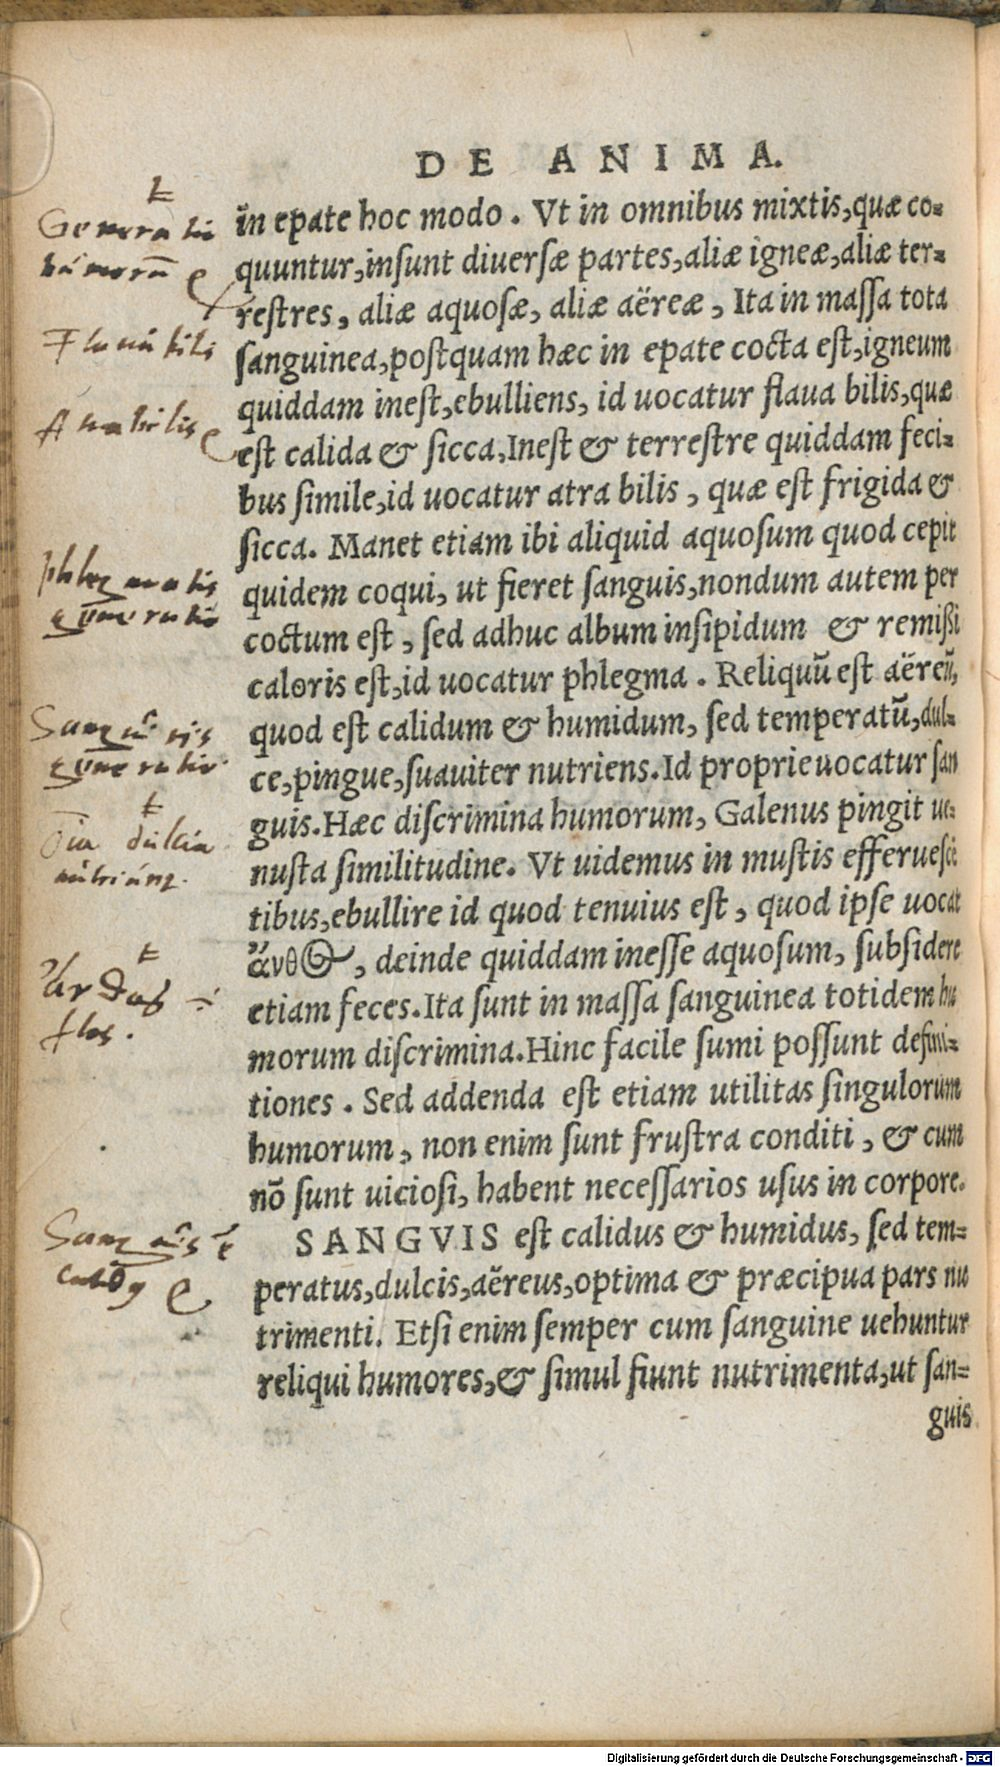 DE ANIMA.
in epate hoc modo. Vt in omnibus mixtis, quæ co=
quuntur, insunt diuersæ partes, aliæ igneæ, aliæ ter=
restres, aliæ aquosæ, aliæ aëreæ, Ita in massa tota
sanguinea, postquam hæc in epate cocta est, igneum
quiddam inest, ebulliens, id uocatur flaua bilis, quæ
est calida & sicca, Inest & terrestre quiddam feci=
bus simile, id uocatur atra bilis, quæ est frigida &
sicca. Manet etiam ibi aliquid aquosum quod cepit
quidem coqui, ut fieret sanguis, nondum autem per
coctum est, sed adhuc album insipidum & remissi
caloris est, id uocatur phlegma. Reliquū est aëreū,
quod est calidum & humidum, sed temperatū, dul=
ce, pingue, suauiter nutriens. Id proprie uocatur san
guis. Hæc discrimina humorum, Galenus pingit ue=
nusta similitudine. Vt uidemus in mustis efferuescē
tibus, ebullire id quod tenuius est, quod ipse uocat
ἄνθος, deinde quiddam inesse aquosum, subsidere
etiam feces. Ita sunt in massa sanguinea totidem hu
morum discrimina. Hinc facile sumi possunt defini=
tiones. Sed addenda est etiam utilitas singulorum
humorum, non enim sunt frustra conditi, & cum
nō sunt uiciosi, habent necessarios usus in corpore.
SANGVIS est calidus & humidus, sed tem=
peratus, dulcis, aëreus, optima & præcipua pars nu
trimenti. Etsi enim semper cum sanguine uehuntur
reliqui humores, & simul fiunt nutrimenta, ut san=
guis
Generatio
humorū
Flaua bilis
Atra bilis
phlegmatis
generatio
Sanguinis
generatio
flos.
Digitalisierung gefördert durch die Deutsche Forschungsgemeinschaft - DFG